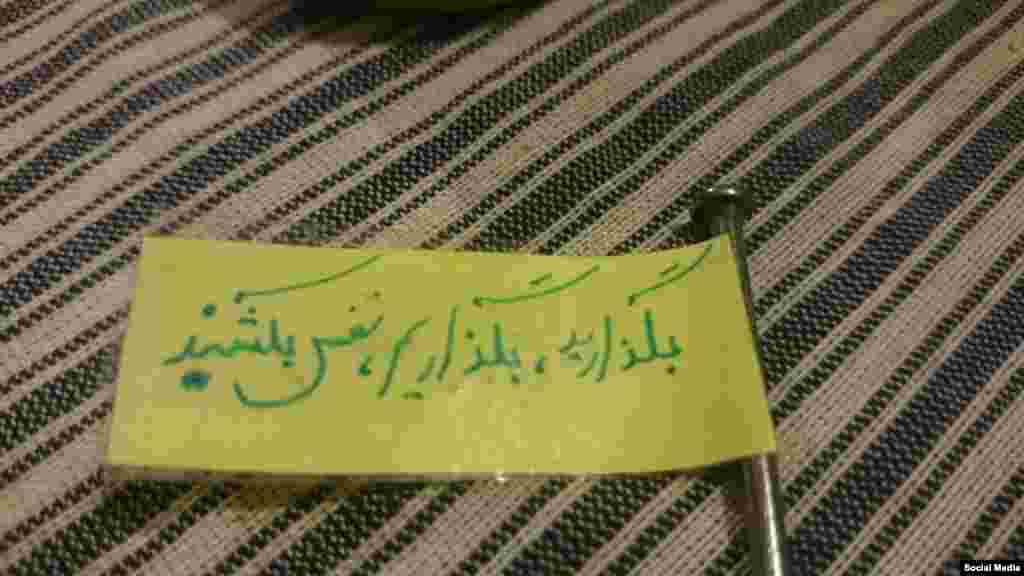 بگذارید، بگذاریم، نفس بکشید.
Social Media